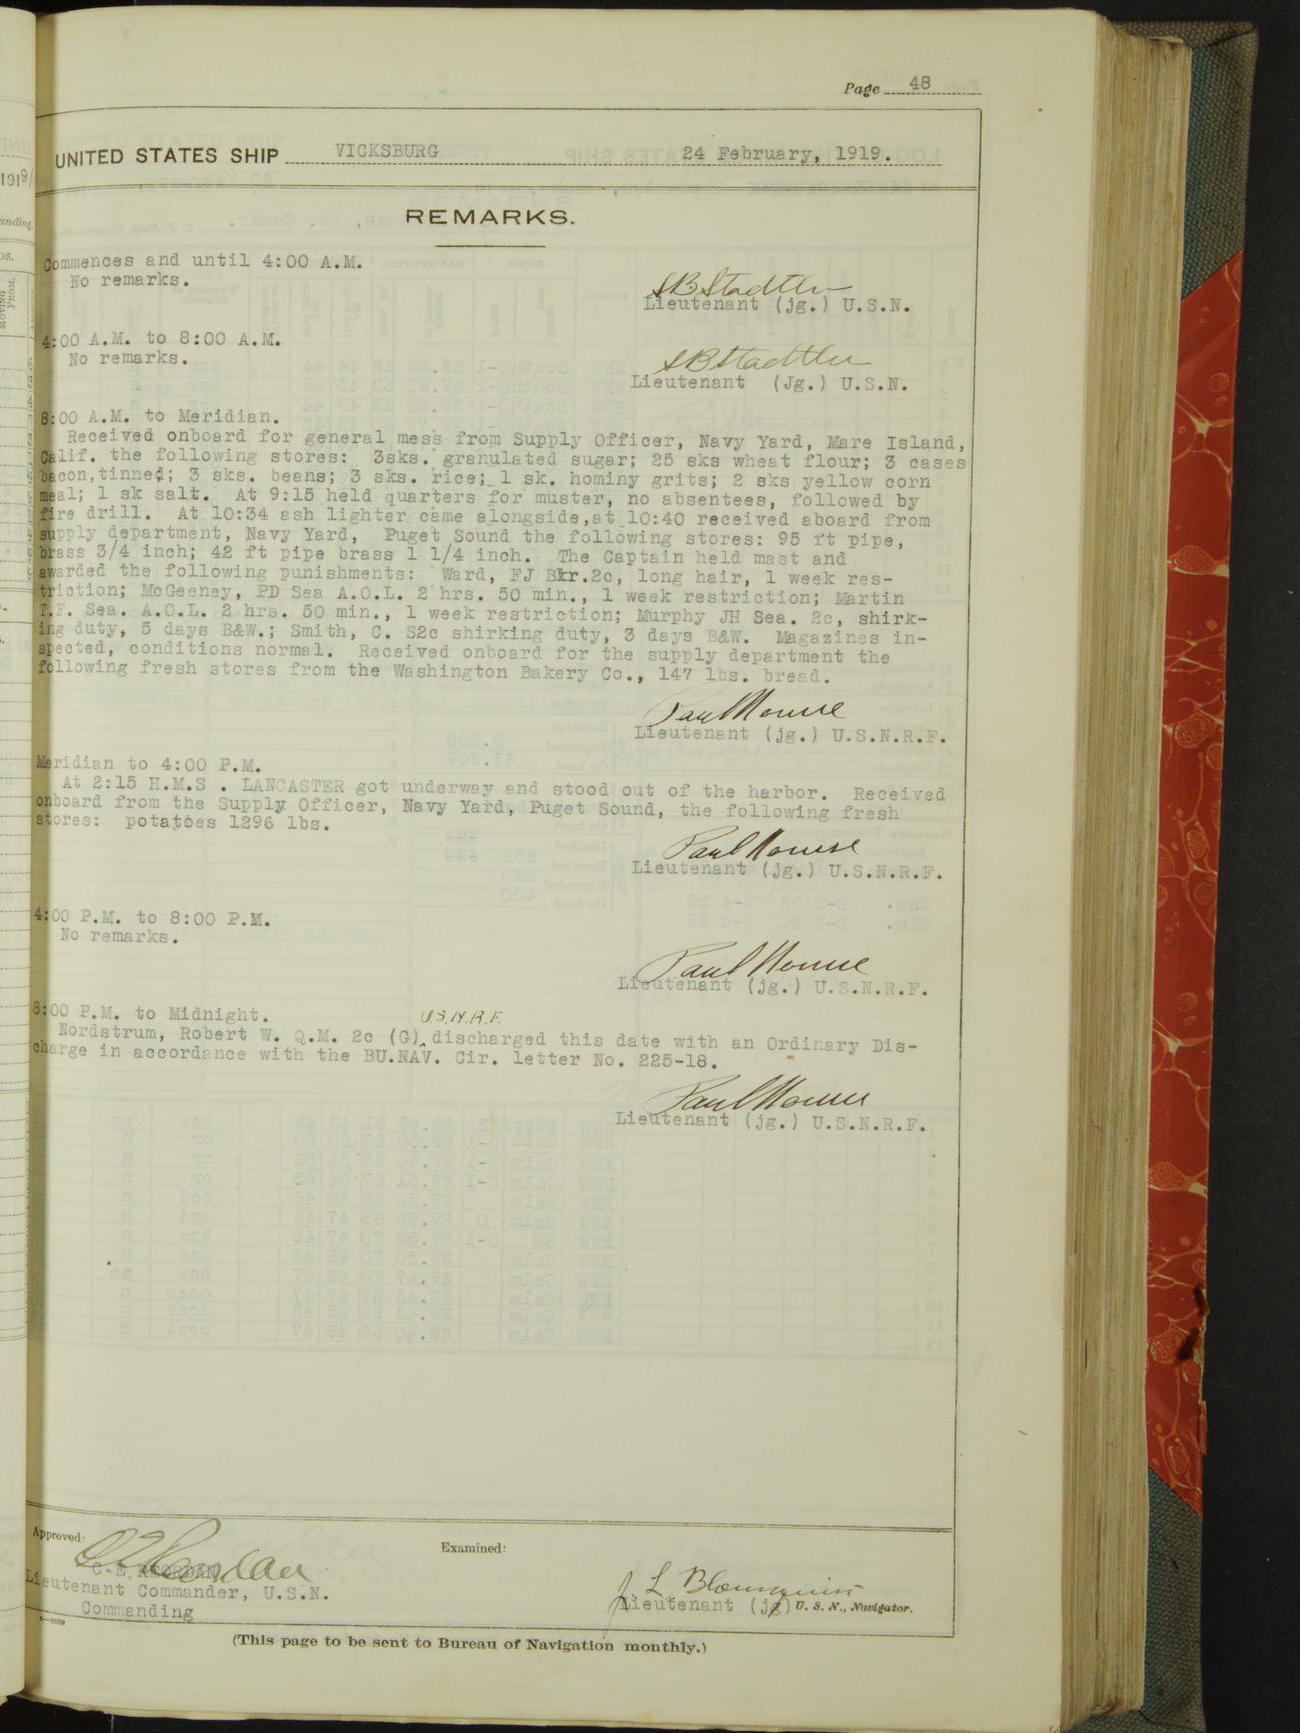 Page 48
UNITED STATES SHIP VICKSBURG 24 February, 1919.
REMARKS.
Commences and until 4:00 A.M.
No remarks.
SB Stadtler
Lieutenant (jg.) U.S.N.
4:00 A.M. to 8:00 A.M.
No remarks.
SB Stadtler
Lieutenant (Jg.) U.S.N.
8:00 A.M. to Meridian.
Received onboard for general mess from Supply Officer, Navy Yard, Mare Island,
Calif. the following stores: 3sks. granulated sugar; 25 sks wheat flour; 3 cases
bacon,tinned; 3 sks. beans; 3 sks. rice; 1 sk. hominy grits; 2 sks yellow corn
meal; 1 sk salt. At 9:15 held quarters for muster, no absentees, followed by
fire drill. At 10:34 ash lighter came alongside,at 10:40 received aboard from
supply department, Navy Yard, Puget Sound the following stores: 95 ft pipe,
brass 3/4 inch; 42 ft pipe brass 1 1/4 inch. The Captain held mast and
awarded the following punishments: Ward, FJ Bkr.2c, long hair, 1 week res-
triction; McGeeney, PD Sea A.O.L. 2 hrs. 50 min., 1 week restriction; Martin
T.F. Sea. A.O.L. 2 hrs. 50 min., 1 week restriction; Murphy JH Sea. 2c, shirk-
ing duty, 5 days B&W.; Smith, C. S2c shirking duty, 3 days B&W. Magazines in-
spected, conditions normal. Received onboard for the supply department the
following fresh stores from the Washington Bakery Co., 147 lbs. bread.
Paul
Lieutenant (jg.) U.S.N.R.F.
Meridian to 4:00 P.M.
At 2:15 H.M.S . LANCASTER got underway and stood out of the harbor. Received
onboard from the Supply Officer, Navy Yard, Puget Sound, the following fresh
stores: potatoes 1296 lbs.
Paul
Lieutenant (jg.) U.S.N.R.F.
4:00 P.M. to 8:00 P.M.
No remarks.
Paul
Lieutenant (jg.) U.S.N.R.F.
8:00 P.M. to Midnight.
U.S.N.R.F.
Nordstrum, Robert W. Q.M. 2c (G) discharged this date with an Ordinary Dis-
charge in accordance with the BU.NAV. Cir. letter No. 225-18.
Paul
Lieutenant (jg.) U.S.N.R.F.
Approved:
Examined:
C.E.
Lieutenant Commander, U.S.N.
Commanding
J. L.
Lieutenant (jg) U. S. N., Navigator.
(This page to be sent to Bureau of Navigation monthly.)